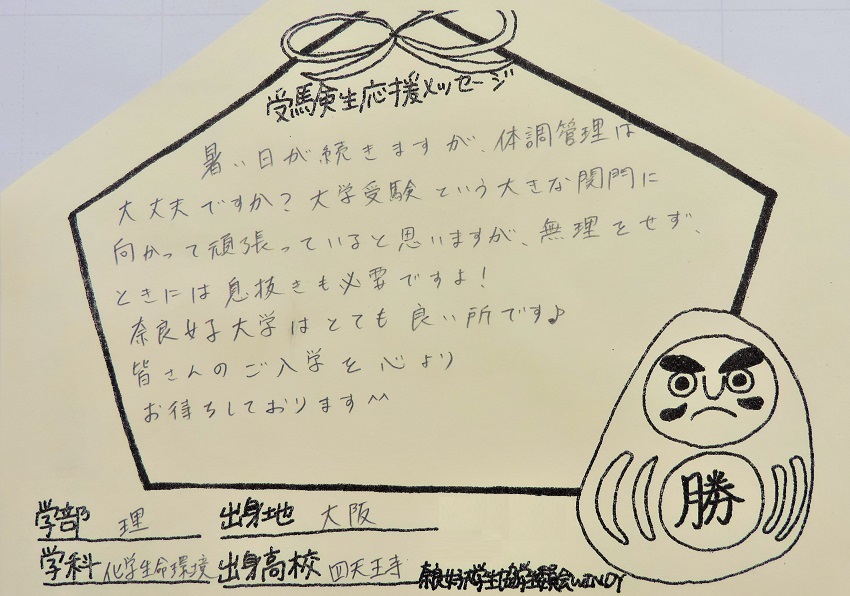 受験生応援メッセージ
暑い日が続きますが、体調管理は
大丈夫ですか?大学受験という大きな関門に
向かって頑張っていると思いますが、無理をせず、
ときには息抜きも必要ですよ!
奈良女子大学はとても良い所です♪
皆さんのご入学を心より
お待ちしております^^
勝
学部 理 出身地 大阪
学科 化学生命環境 出身高校 四天王寺
WINDY